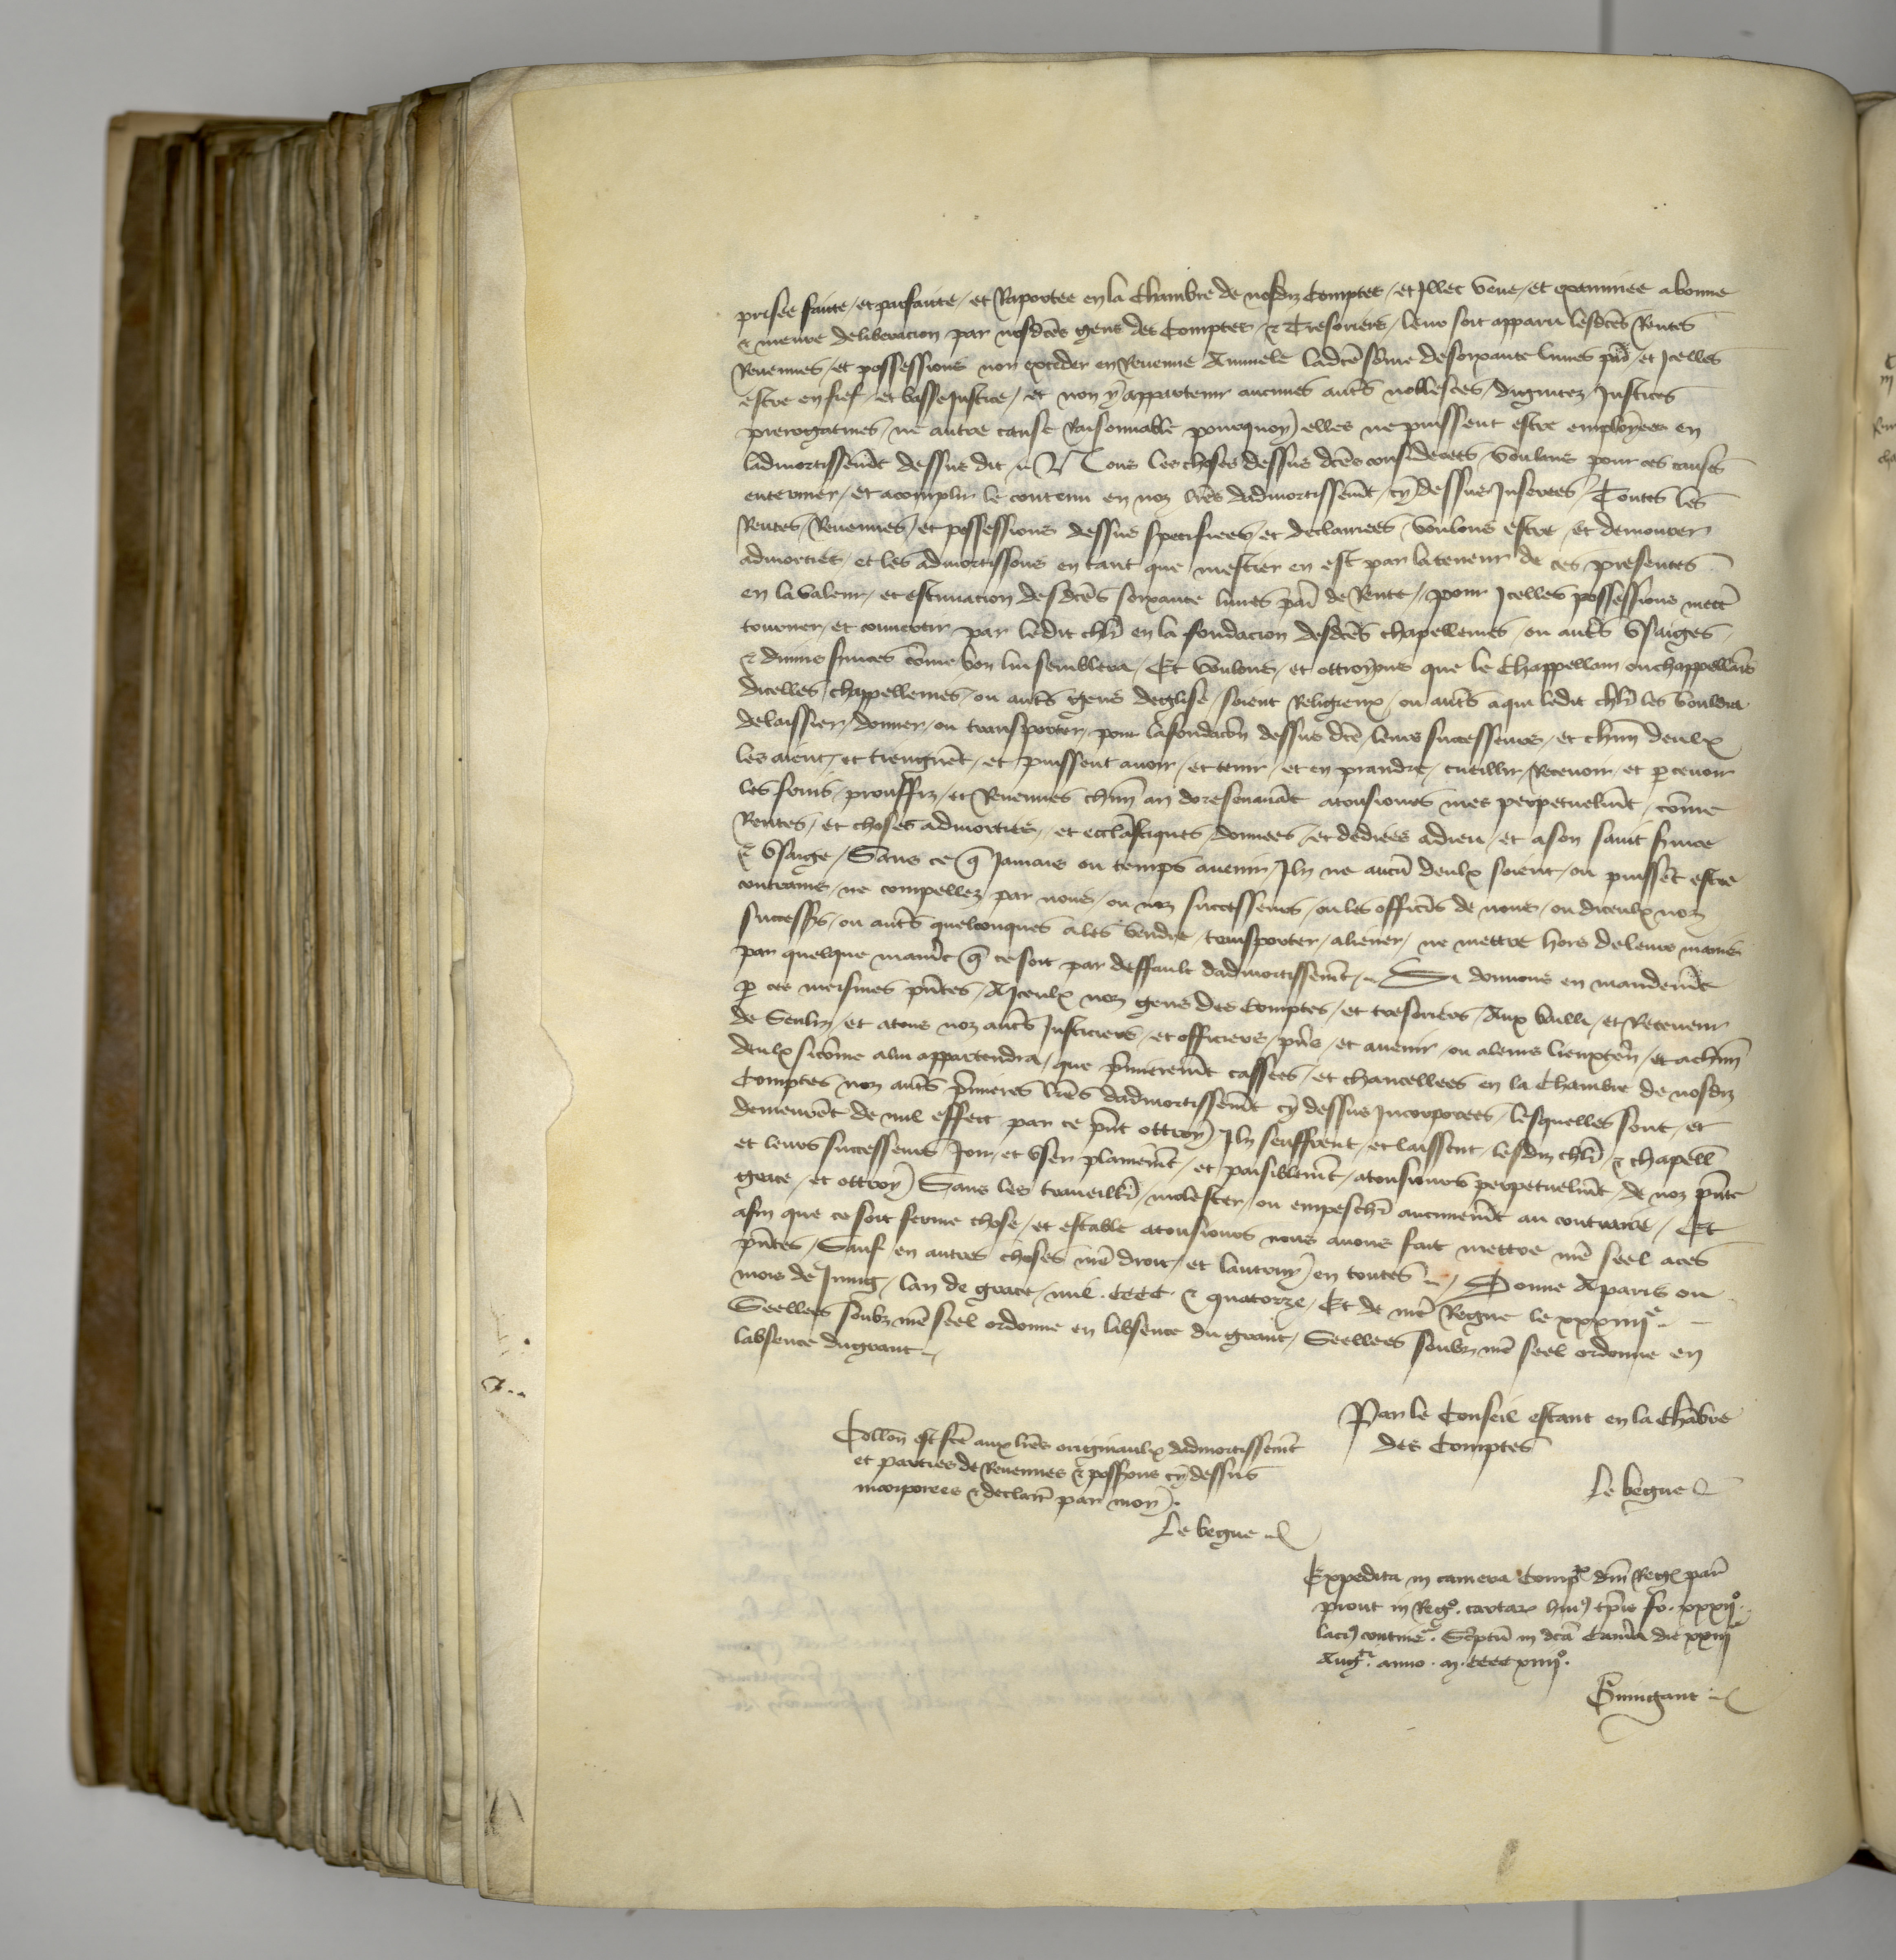 prisee faite / et parfaite / et Raportee en la Chambre de nosdiz Comptes / et Illec veue / et examinee a bonne
& meure deliberacion par nosdc̄es gens des Comptes / & Tresoriers / leur soit apparu lesdc̄es Rentes
Revenues / et possessions non exceder en Revenue Annuele ladc̄e sōme de soixante livres par̄ / et Icelles
estre en fief / et basse Justice / et non y appartenir aucunes aut̄s noblesces / dignitez / Justices
prerogatives / ne autre cause Raisonnable pourquoy elles ne puissent estre employees en
ladmortissem̄t dessus dit / Nous les choses dessus dc̄es considerees / voulans pour ces causes
enteriner / et acomplir le contenu en noz lr̄es dadmortissem̄t / cy dessus Inserees / Toutes les
Rentes / Revenues / et possessions dessus specifiees / et declairees / voulons estre / et demourer
admorties / et les admortissons en tant que mestier en est par la teneur de ces presentes
en la valeur / et estimacion desdc̄es soixante livres par̄ de Rente / pour Icelles possessions mett̄
tourner / et convertir par ledit chl̄r en la fondacion desdc̄es chapellenies / ou aut̄s usaiges /
& divins s̄vices cōme bon lui semblera / Et voulons / et ottroyons que le Chappellain ou chappellains
dicelles chappellenies / ou aut̄s gens deglise / soient Religieux / ou aut̄s a qui ledit chl̄r les vouldra
delaissier / donner / ou transporter / pour la fondac̄on dessus dc̄e / leurs successeurs / et chūn deulx
les aient / et tiengnēt / et puissent avoir / et tenir / et en prandre / cueillir / Recevoir / et p̱cevoir
les fruis / prouffiz / et Revenues chūn an doresenavāt a tousiours mes perpetuelm̄t / cōme
Rentes / et choses admorties / et eccl̄astiques / donnees / et dediees a dieu / et a son saint s̄vice
& usaige / Sans ce q̄ Jamais ou temps avenir / Ilz ne aucū deulx soient / ou puissēt estre
contrains / ne compellez par nous / ou noz successeurs / ou les offic̄ies de nous / ou diceulx noz
success̄rs / ou aut̄s quelconques a les vendre / transporter / aliener / ne mettre hors de leurs mains
par quelque manīe q̄ ce soit par deffault dadmortissem̄t / Si donnons en mandem̄t
p̱ ces meismes pn̄tes / A Iceulx noz gens des Comptes / et tresoriers / Aux bailli / et Receveur
de Senliz / et a tous noz aut̄s Justiciers / et officiers / pn̄s / et avenir / ou a leurs lieuxten̄ / et a chūn
deulx sicōme a lui appartendra / que p̄mierem̄t cassees / et chancellees en la Chambre de nosdiz
Comptes noz aut̄s p̄mieres lr̄es dadmortissem̄t cy dessus Incorporees / lesquelles sont / et
demeurēt de nul effect par ce pn̄t ottroy / Ilz seuffrent / et laissent / lesdiz chl̄r / & chapell̄
et leurs successeurs Joir / et user plainem̄t / et paisiblem̄t / a tousiours perpetuelm̄t / de noz pn̄te
grace / et ottroy / Sans les traveillier / molester / ou empeschier aucunem̄t au contraire / Et
afin que ce soit ferme chose / et estable a tousiours nous avons fait mettre n̄re seel a ces
pn̄tes / Sauf en autres choses n̄re droit / et lautruy en toutes / Donne A paris ou
mois de Juing / lan de grace / mil . cccc . & quatorze / Et de n̄re Regne le xxxiiije
Seellees soubz n̄re seel ordonne en labsence du grant / Seellees soubz n̄re seel ordonne en
labsence du grant
Par le Conseil estant en la Chābre
des Comptes
Le begue
Collon̄ est fc̄e aux lr̄es originaulx dadmortissem̄t
et parties de Revenues & poss̄ions cy dessus
incorporees & declair̄ par moy .
Le begue
Expedita in camera Comp̄ dn̄i Reḡ par̄
prout in Rego . cartar̄ hui9 tp̄ris fo . xxxiio .
laci9 contine . Sc̄ptū in dc̄a Cam̄a die xxiii
Augti . anno . m . cccc xiiijo .
Guingant